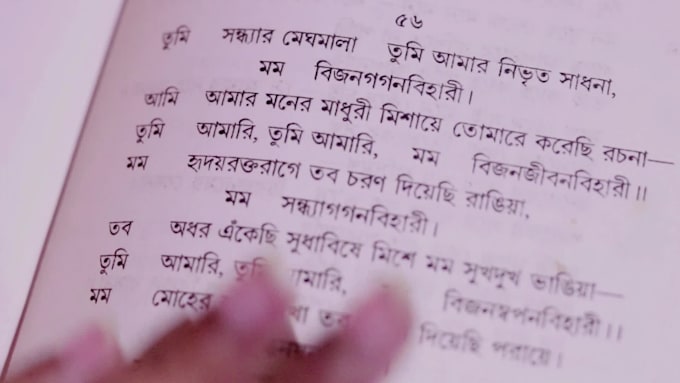 ৫৬
তুমি সন্ধ্যার মেঘমালা তুমি আমার নিভৃত সাধনা,
মম বিজনগগনবিহারী।
আমি আমার মনের মাধুরী মিশায়ে তোমারে করেছি রচনা—
তুমি আমারি, তুমি আমারি, মম বিজনজীবনবিহারী।।
মম হৃদয়রক্তরাগে তব চরণ দিয়েছি রাঙিয়া,
মম সন্ধ্যাগগনবিহারী।
তব অধর এঁকেছি সুধাবিষে মিশে মম সুখদুখ ভাঙিয়া—
তুমি আমারি, বিজনস্বপনবিহারী।।
মম মোহের দিয়েছি পরায়ে।